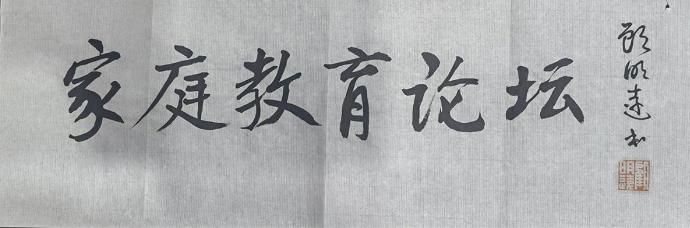 家庭教育论坛
顾明远书